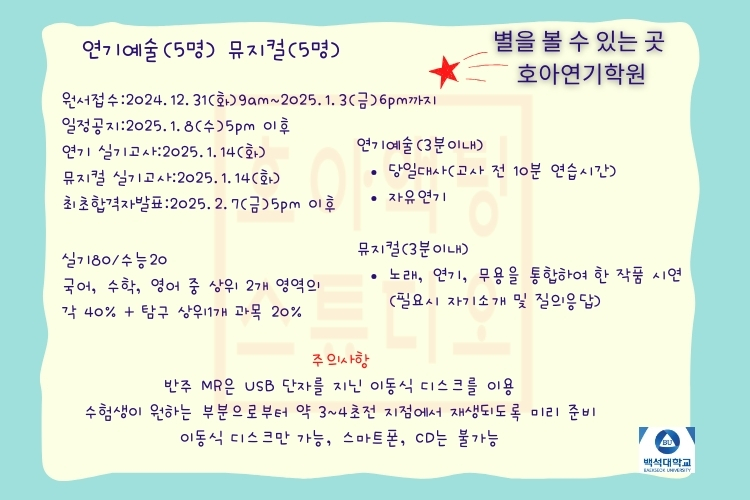 연기예술(5명) 뮤지컬(5명)
별을 볼 수 있는 곳
호아연기학원
원서접수:2024.12.31(화)9am~2025.1.3(금)6pm까지
일정공지:2025.1.8(수)5pm 이후
연기 실기고사:2025.1.14(화)
뮤지컬 실기고사:2025.1.14(화)
최초합격자발표:2025.2.7(금)5pm 이후
연기예술(3분이내)
당일대사(고사 전 10분 연습시간)
자유연기
실기80/수능20
국어, 수학, 영어 중 상위 2개 영역의
각 40% + 탐구 상위1개 과목 20%
뮤지컬(3분이내)
노래, 연기, 무용을 통합하여 한 작품 시연
(필요시 자기소개 및 질의응답)
주의사항
반주 MR은 USB 단자를 지닌 이동식 디스크를 이용
수험생이 원하는 부분으로부터 약 3~4초전 지점에서 재생되도록 미리 준비
이동식 디스크만 가능, 스마트폰, CD는 불가능
호아액팅
스튜디오
BU
백석대학교
BAEKSEOK UNIVERSITY